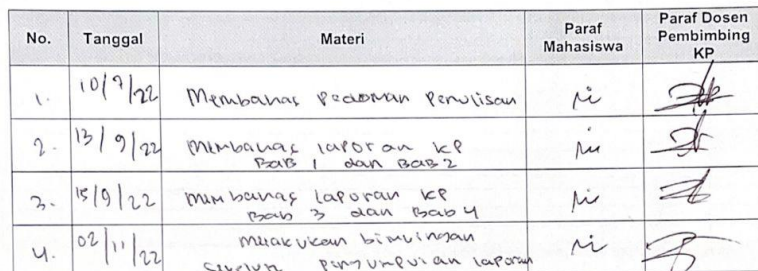 No. Tanggal Materi Paraf Mahasiswa Paraf Dosen Pembimbing KP
1. 10/9/22 Membahas Pedoman Penulisan
2. 13/9/22 Membahas laporan KP
BAB 1 dan BAB 2
3. 15/9/22 Membahas Laporan KP
Bab 3 dan Bab 4
4. 02/11/22 Melakukan bimbingan
Sebelum Pengumpulan laporan